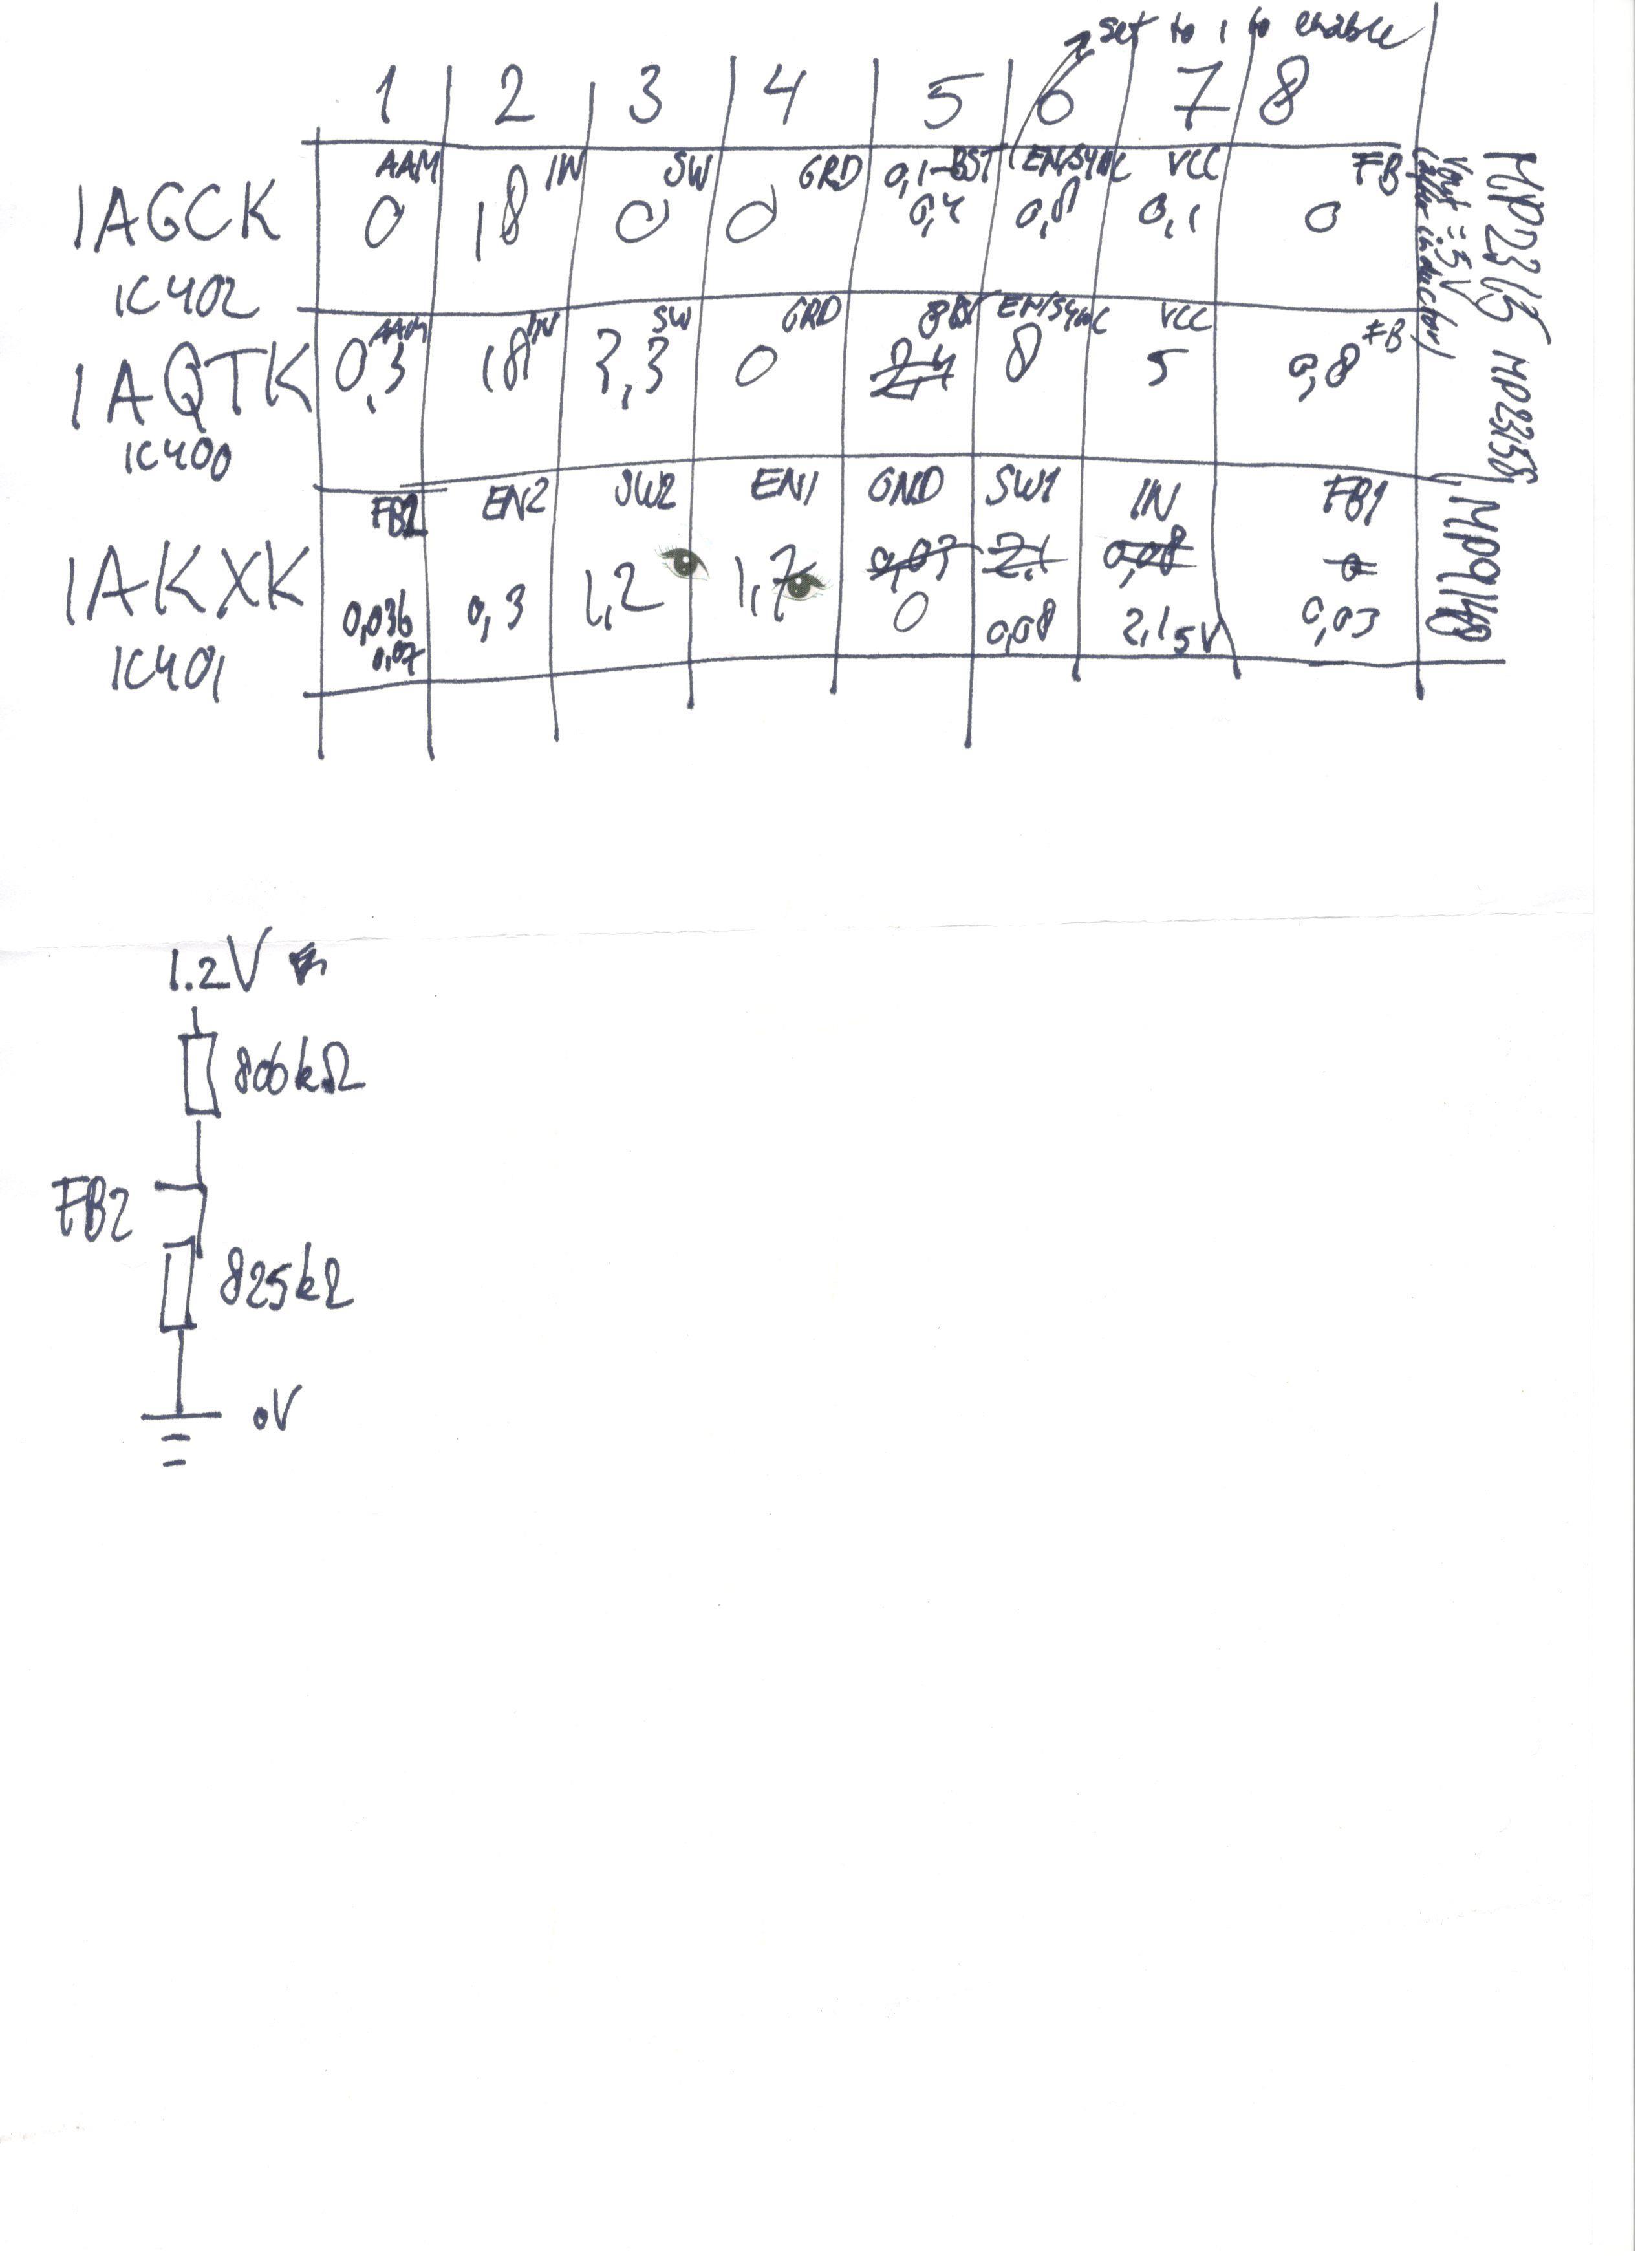 set to 1 to enable
1 2 3 4 5 6 7 8
AAM IN SW GRD BST EN/SYNC VCC FB
IAGCK 0 18 0 0 0,1-0,4 0,8 0,1 0
IC402
MP2315
Vout = 5V
(after inductor)
AAM IN SW GRD BST EN/SYNC VCC FB
IAQTK 0,3 18 3,3 0 8 5 0,8
IC400
MP2315S
FB2 EN2 SW2 EN1 GND SW1 IN FB1
0,03 2,1 0,08 0
IAKXK 0,036 0,3 1,2 1,7 0 0,08 2,1 5V 0,03
0,07
IC401
1.2V
806kΩ
FB2
825kΩ
0V